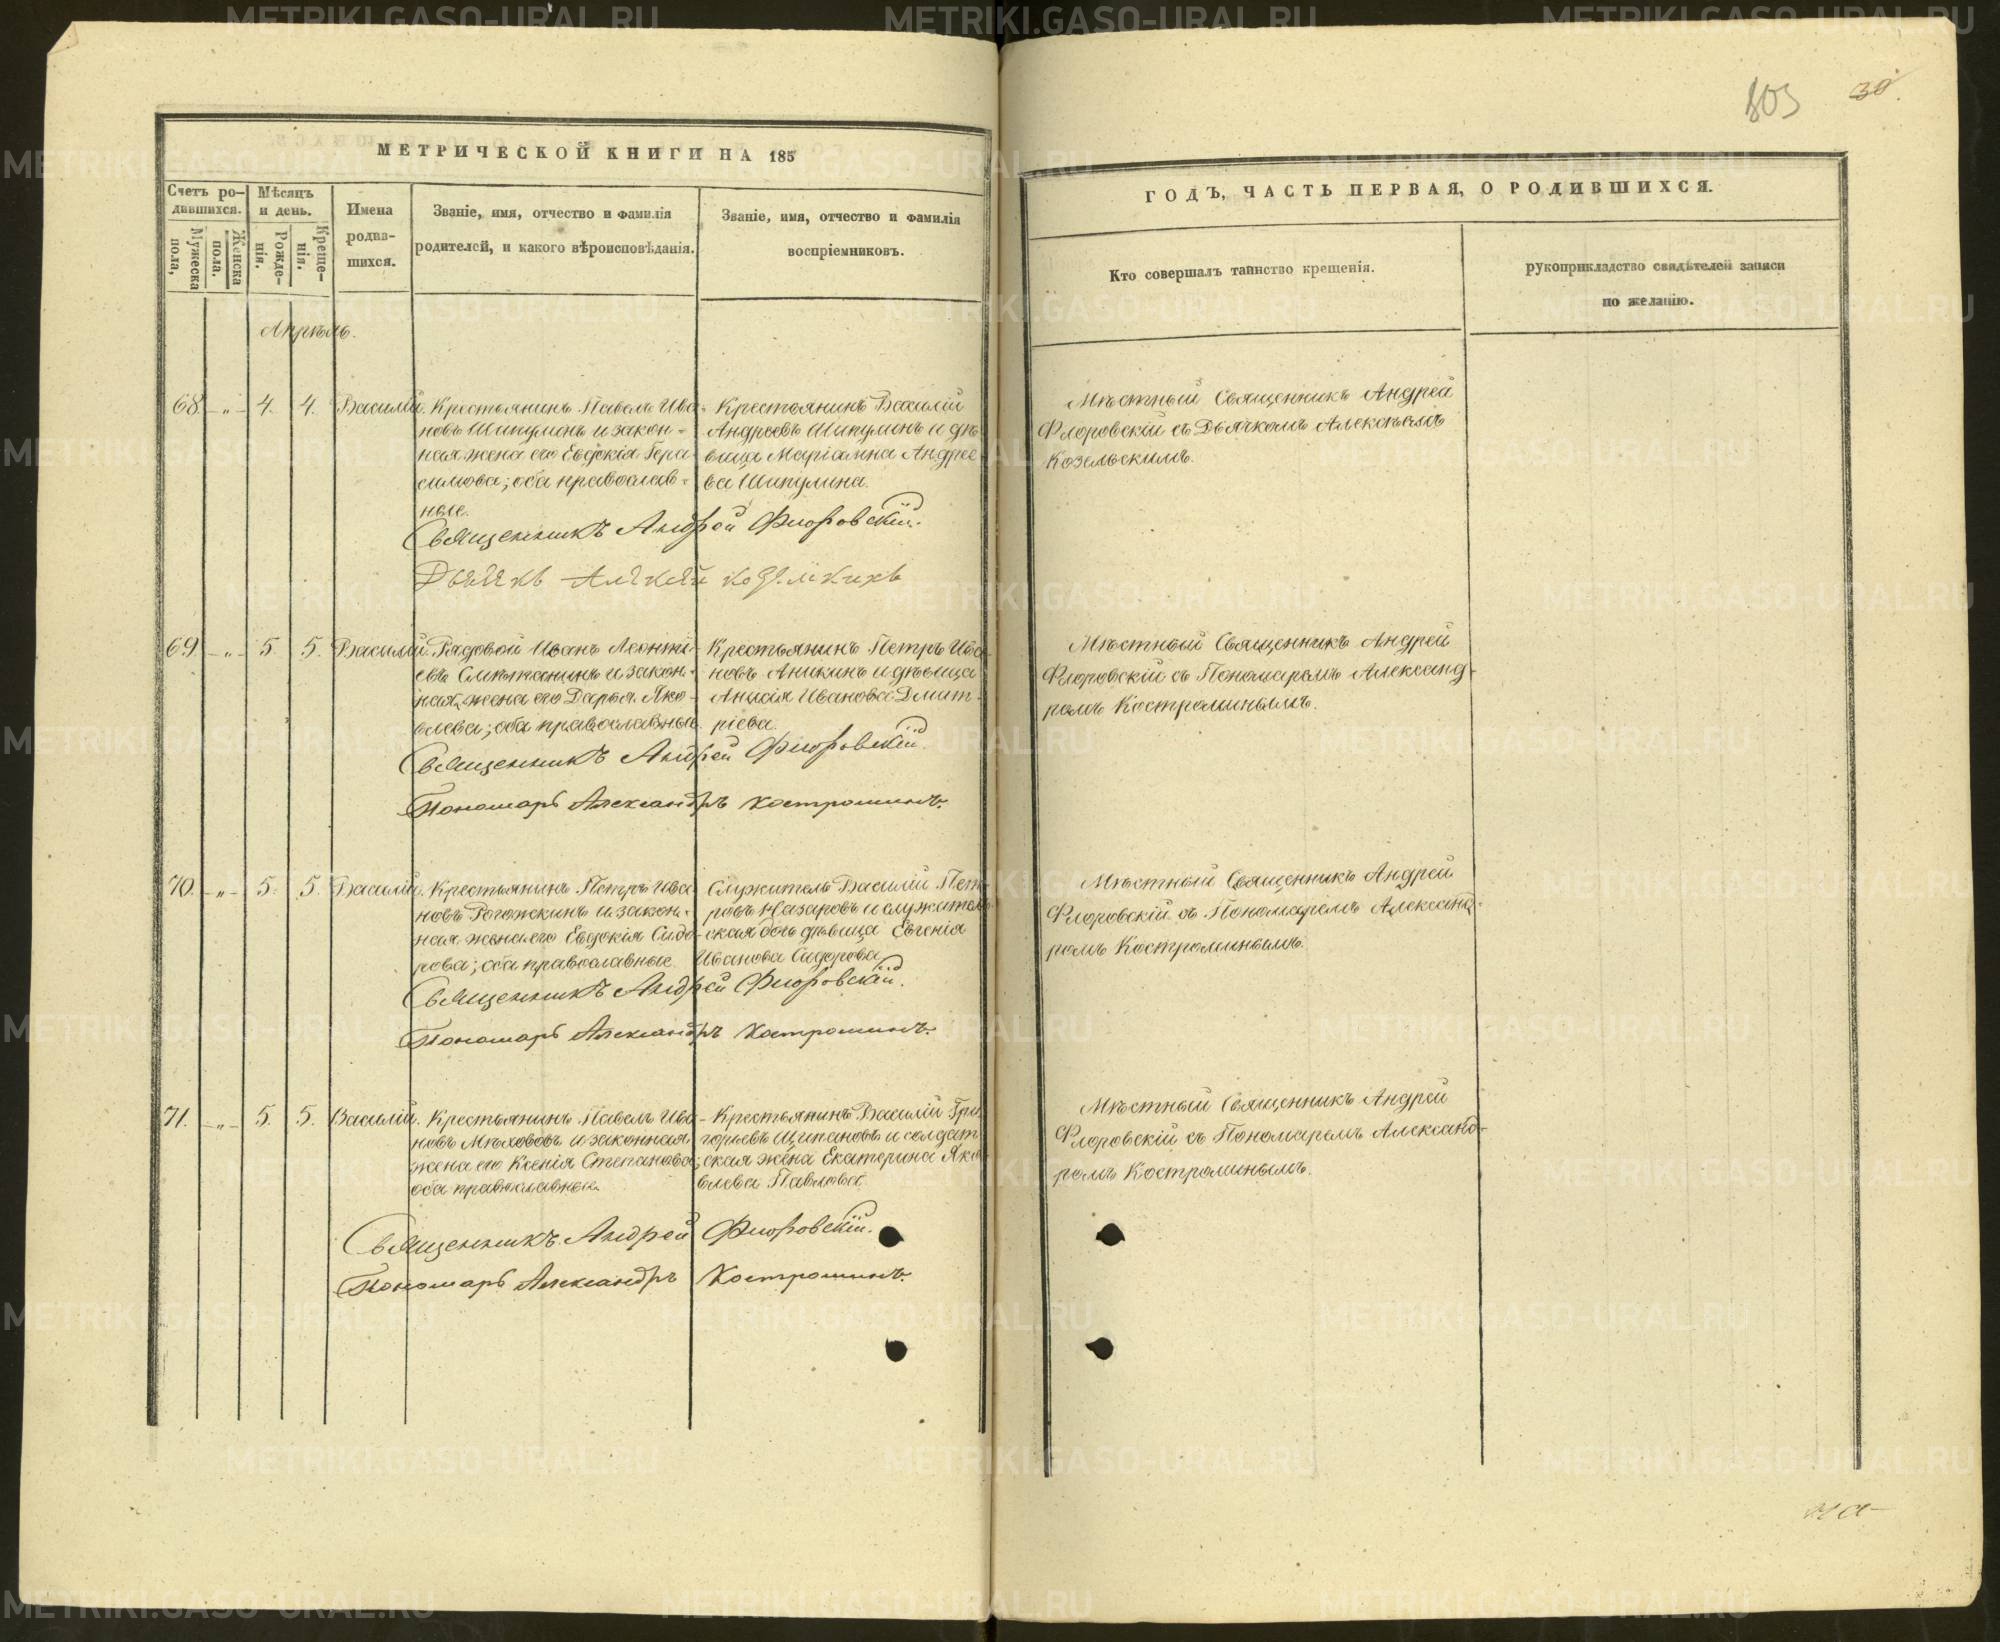 803 30
МЕТРИЧЕСКОЙ КНИГИ НА 185
ГОДЪ, ЧАСТЬ ПЕРВАЯ, О РОДИВШИХСЯ.
Счетъ ро-
дившихся.
Мужеска
пола,
Женска
пола.
Мѣсяцъ
и день.
Рожде-
нія.
Креще-
нія.
Имена
родив-
шихся.
Званіе, имя, отчество и фамилія
родителей, и какого вѣроисповѣданія.
Званіе, имя, отчество и фамилія
воспріемниковъ.
Кто совершалъ таинство крещенія.
рукоприкладство свидѣтелей записи
по желанію.
Апрѣль.
68. - „ - 4. 4. Василій.
Крестьянинъ Павелъ Ива-
новъ Шипулинъ и закон-
ная жена его Евдокія Гера-
симова; оба православ-
ные.
Крестьянинъ Василій
Андреевъ Шипулинъ и дѣ-
вица Маріамна Андрее-
ва Шипулина.
Мѣстный Священникъ Андрей
Флоровскій съ Дьячкомъ Алексѣемъ
Козельскимъ.
Священникъ Андрей Флоровскій.
Дьячекъ Алексей
69. - „ - 5. 5. Василій.
Рядовой Иванъ Леонті-
евъ Смѣтанинъ и закон-
ная жена его Дарья Яко-
влева; оба православные.
Крестьянинъ Петръ Ива-
новъ Аникинъ и дѣвица
Анисія Иванова Дмит-
ріева.
Мѣстный Священникъ Андрей
Флоровскій съ Пономаремъ Александ-
ромъ Костроминымъ.
Священникъ Андрей Флоровскій.
Пономарь Александръ Костроминъ.
70. - „ - 5. 5. Василій.
Крестьянинъ Петръ Ива-
новъ Рогожкинъ и закон-
ная жена его Евдокія Сидо-
рова; оба православные.
Служитель Василій Пет-
ровъ Назаровъ и служитель-
ская дочь дѣвица Евгенія
Иванова Сидорова.
Мѣстный Священникъ Андрей
Флоровскій съ Пономаремъ Александ-
ромъ Костроминымъ.
Священникъ Андрей Флоровскій.
Пономарь Александръ Костроминъ.
71. - „ - 5. 5. Василій.
Крестьянинъ Павелъ Ива-
новъ Мѣховъ и законная
жена его Ксенія Степанова;
оба православные.
Крестьянинъ Василій Гри-
горьевъ Щипановъ и солдат-
ская жена Екатерина Яко-
влева Павлова.
Мѣстный Священникъ Андрей
Флоровскій съ Пономаремъ Александ-
ромъ Костроминымъ.
Священникъ Андрей Флоровскій.
Пономарь Александръ Костроминъ.
METRIKI.GASO-URAL.RU